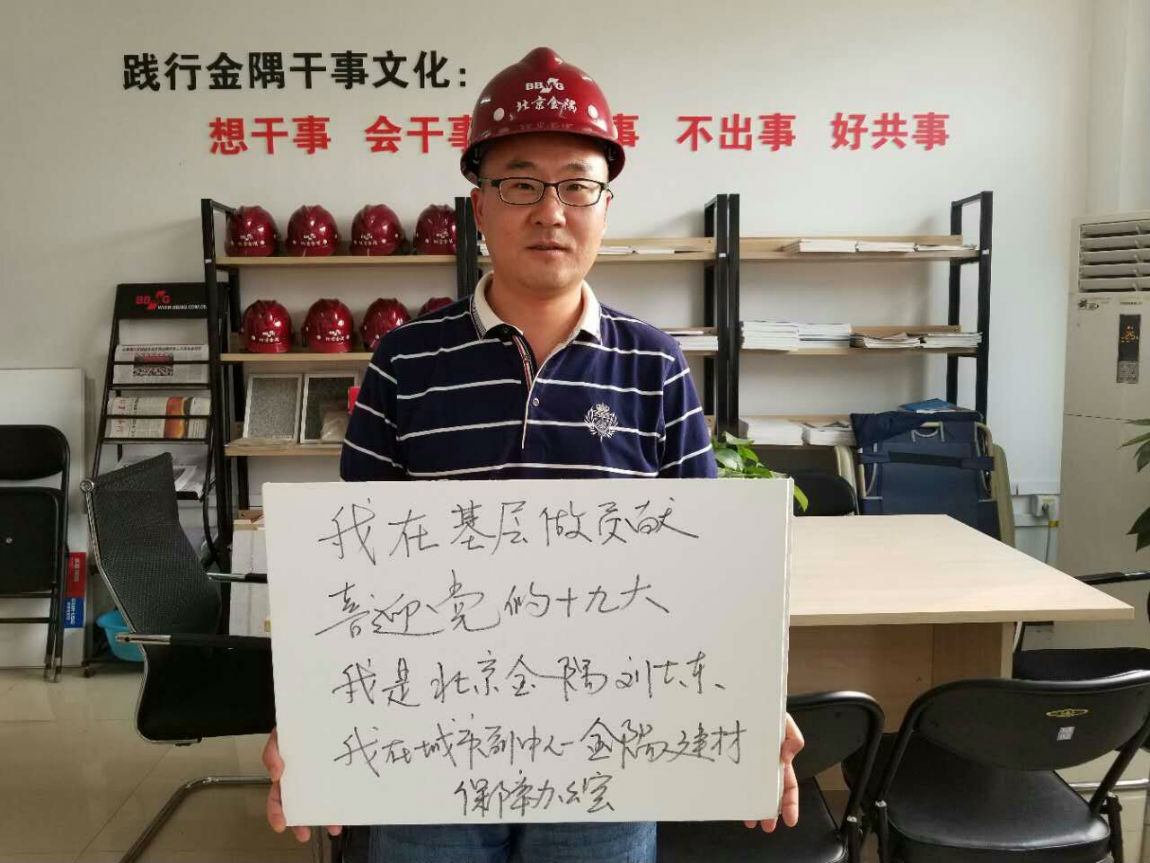 践行金隅干事文化：
想干事 会干事 事 不出事 好共事
BBMG
北京金隅
BBMG
WWW.BBMG.COM.CN
我在基层做贡献
喜迎党的十九大
我是北京金隅刘东、
我在城市副中心金隅建材
保障办公室